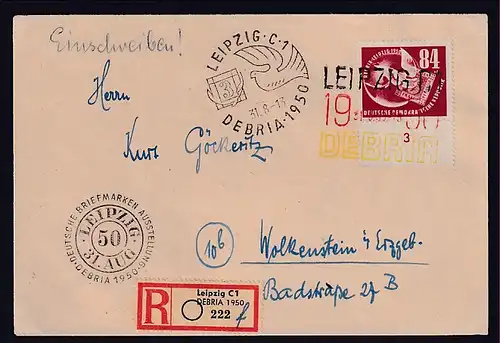 Einschreiben!
LEIPZIG·C·1
31.8
DEBRIA·1950
84
LEIPZIG
DEUTSCHE
19
50
DEBRIA
3
Herrn
Kurt Göckeritz
·DEUTSCHE BRIEFMARKEN AUSSTELLUNG·
·DEBRIA 1950·
·LEIPZIG·
50
31. AUG
(10b) Wolkenstein i/ Erzgeb.
Badstraße 27 B
R
Leipzig C1
DEBRIA 1950
222 f